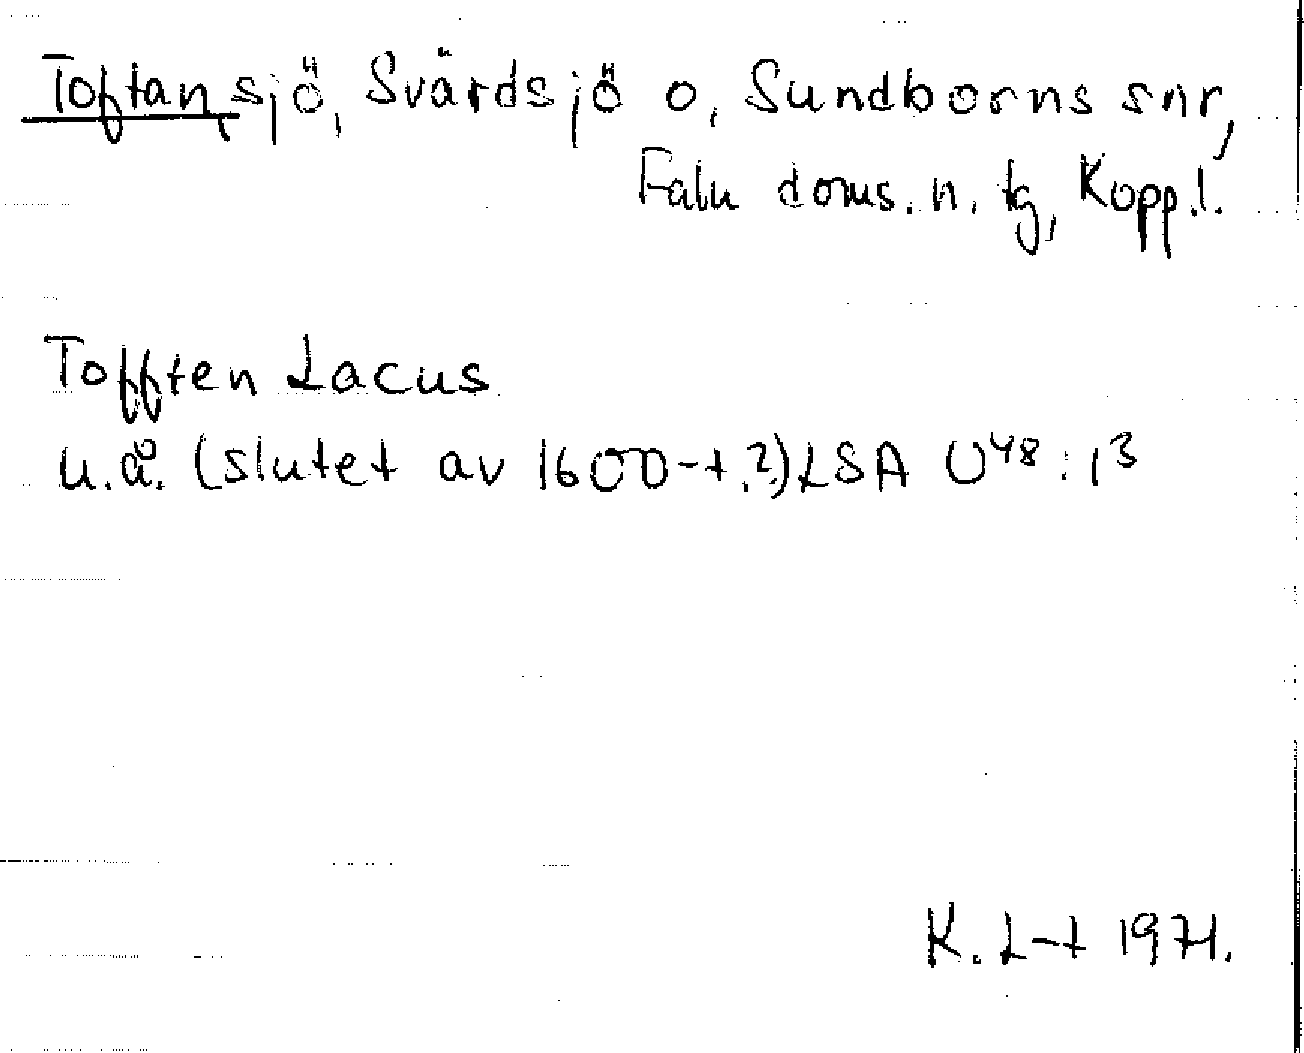 Toftan, sjö, Svärdsjö o, Sundborns snr,
Falu doms. n. tg, Kopp.l.
Tofften Lacus
u.å. (slutet av 1600-t.?) LSA U48:13
K. L-t 1971.